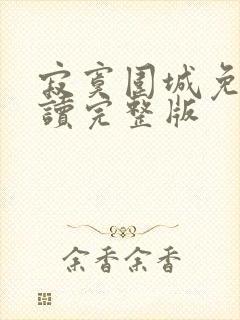 寂寞围城免
讀完整版
余香余香